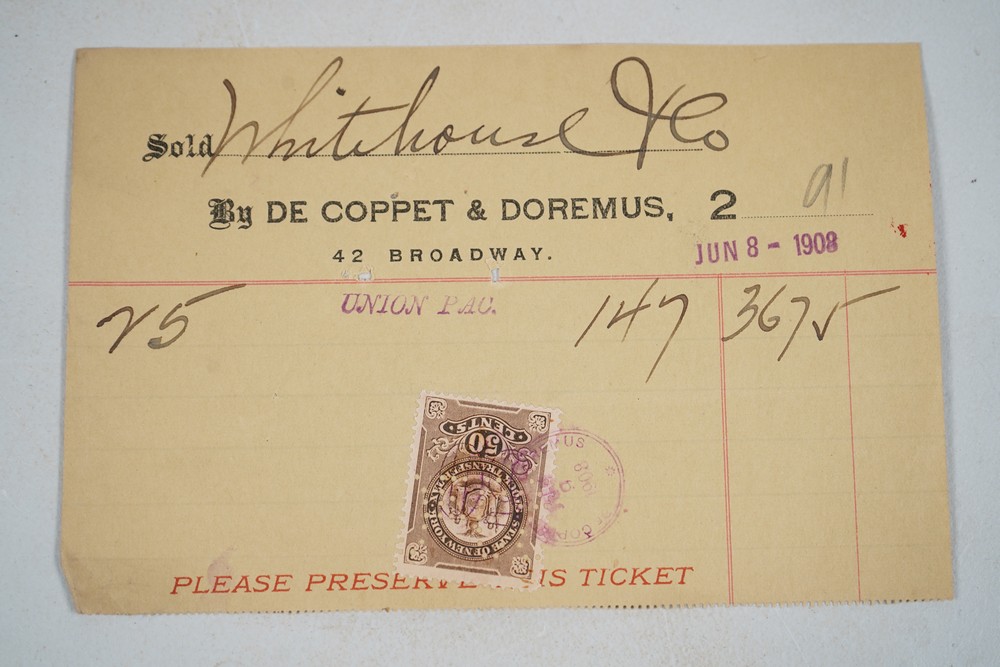 Sold Whitehouse & Co
By DE COPPET & DOREMUS, 2 91
42 BROADWAY. JUN 8 - 1908
UNION PAC.
25 147 3675
50
CENTS
STATE OF NEW YORK
PLEASE PRESERVE IS TICKET